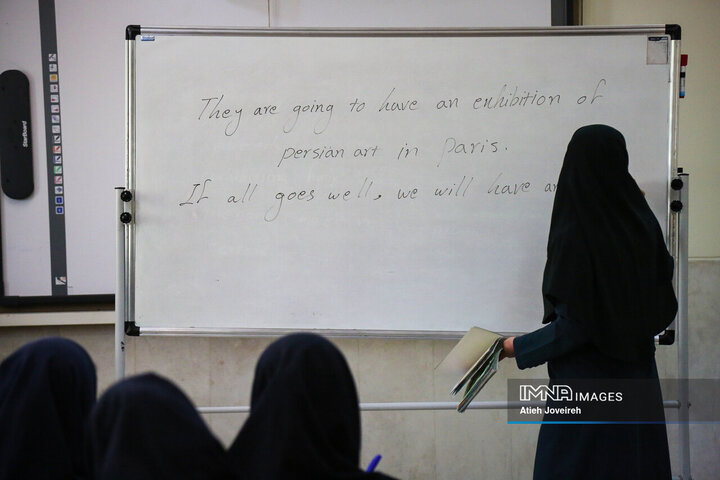 They are going to have an exhibition of
persian art in Paris.
If all goes well, we will have an
StarBoard
IMNA IMAGES
Atieh Joveirei